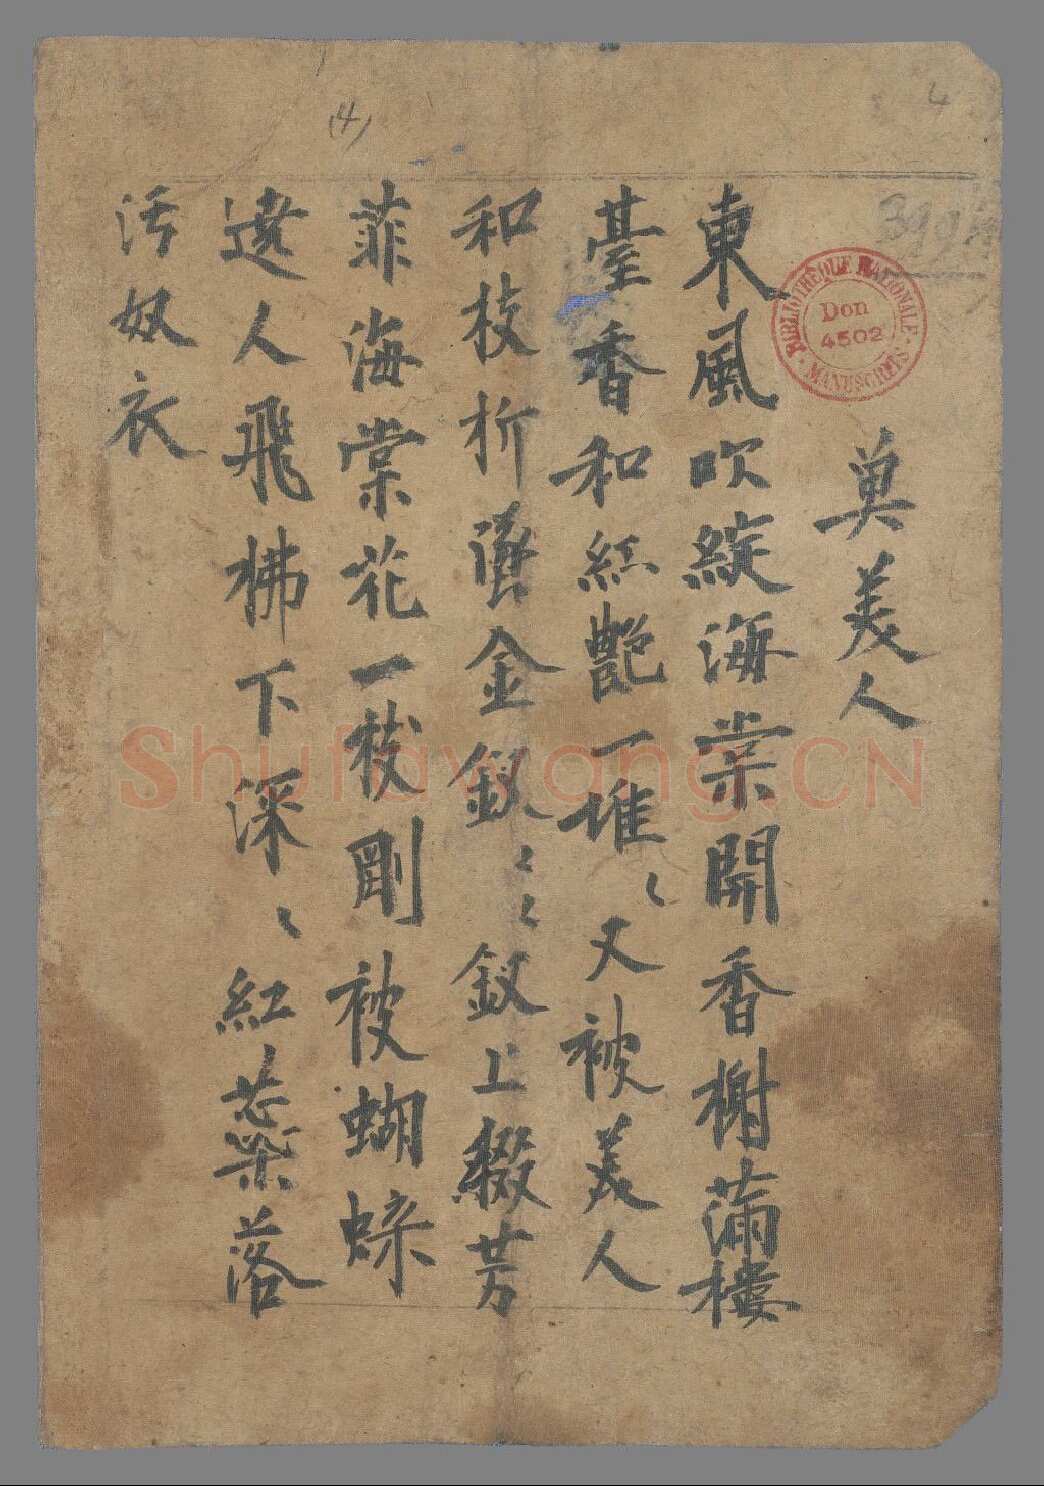 4
(4)
3994
BIBLIOTHÈQUE NATIONALE
Don
4502
MANUSCRITS
奠美人
東風吹綻海棠開香榭蒲樓
臺香和紅艷一堆〻又被美人
和枝折墮金釵〻〻釵上綴芳
菲海棠花一枝剛被蝴蝶
遶人飛拂下深〻紅蕊落
污奴衣
Shufawang.CN